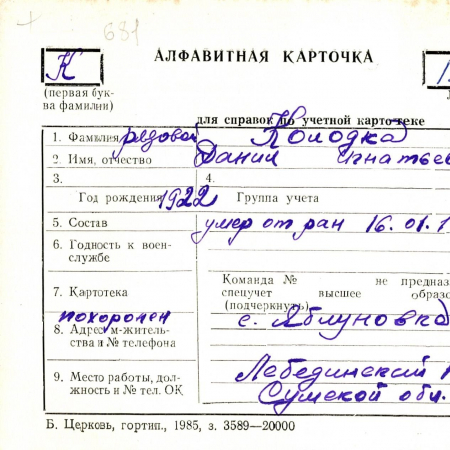 681
АЛФАВИТНАЯ КАРТОЧКА
К
(первая бук-
ва фамилии)
для справок по учетной картотеке
1. Фамилия рядовой Колодка
2. Имя, отчество Данил Игнатьев
3. 4.
Год рождения 1922 Группа учета
5. Состав умер от ран 16.01.1
6. Годность к воен-
службе
Команда № не предназ
7. Картотека спецучет высшее образо
(подчеркнуть)
похоронен с. Яблуновка
8. Адрес м-житель-
ства и № телефона
Лебединский
9. Место работы, дол-
жность и № тел. ОК
Сумской обл.
Б. Церковь, гортип., 1985, з. 3589—20000